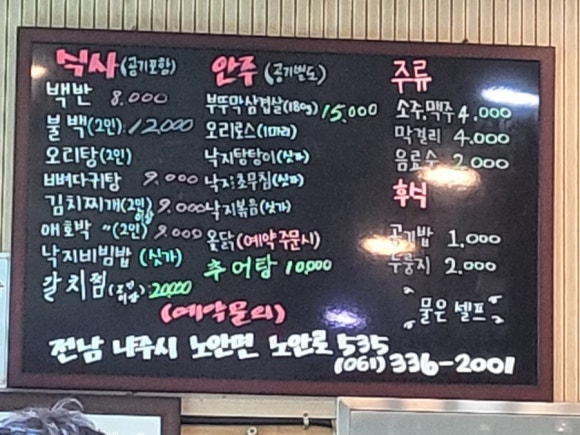 식사 (공기포함)
백반 8.000
불백(2인) 12,000
오리탕(2인)
뼈다귀탕 9.000
김치찌개(2인)이상 9.000
애호박 〃 (2인) 9.000
낙지비빔밥 (싯가)
갈치찜 20000
안주 (공기별도)
부뚜막삼겹살(180g) 15,000
오리로스(1마리)
낙지탕탕이(싯가)
낙지초무침(싯가)
낙지볶음(싯가)
옻닭(예약주문시)
추어탕 10,000
주류
소주,맥주 4.000
막걸리 4.000
음료수 2.000
후식
공기밥 1.000
누룽지 2.000
물은 셀프
(예약문의)
전남 나주시 노안면 노안로 535
(061) 336-2001